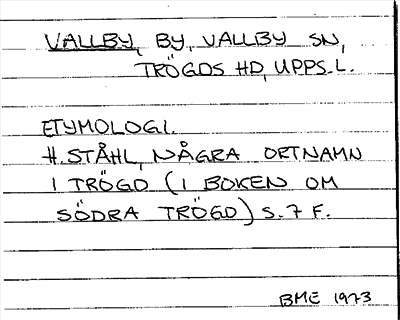 VALLBY, BY, VALLBY SN,
TRÖGDS HD, UPPS. L.
ETYMOLOGI.
H. STÅHL, NÅGRA ORTNAMN
I TRÖGD (I BOKEN OM
SÖDRA TRÖGD) S. 7 F.
BME 1973